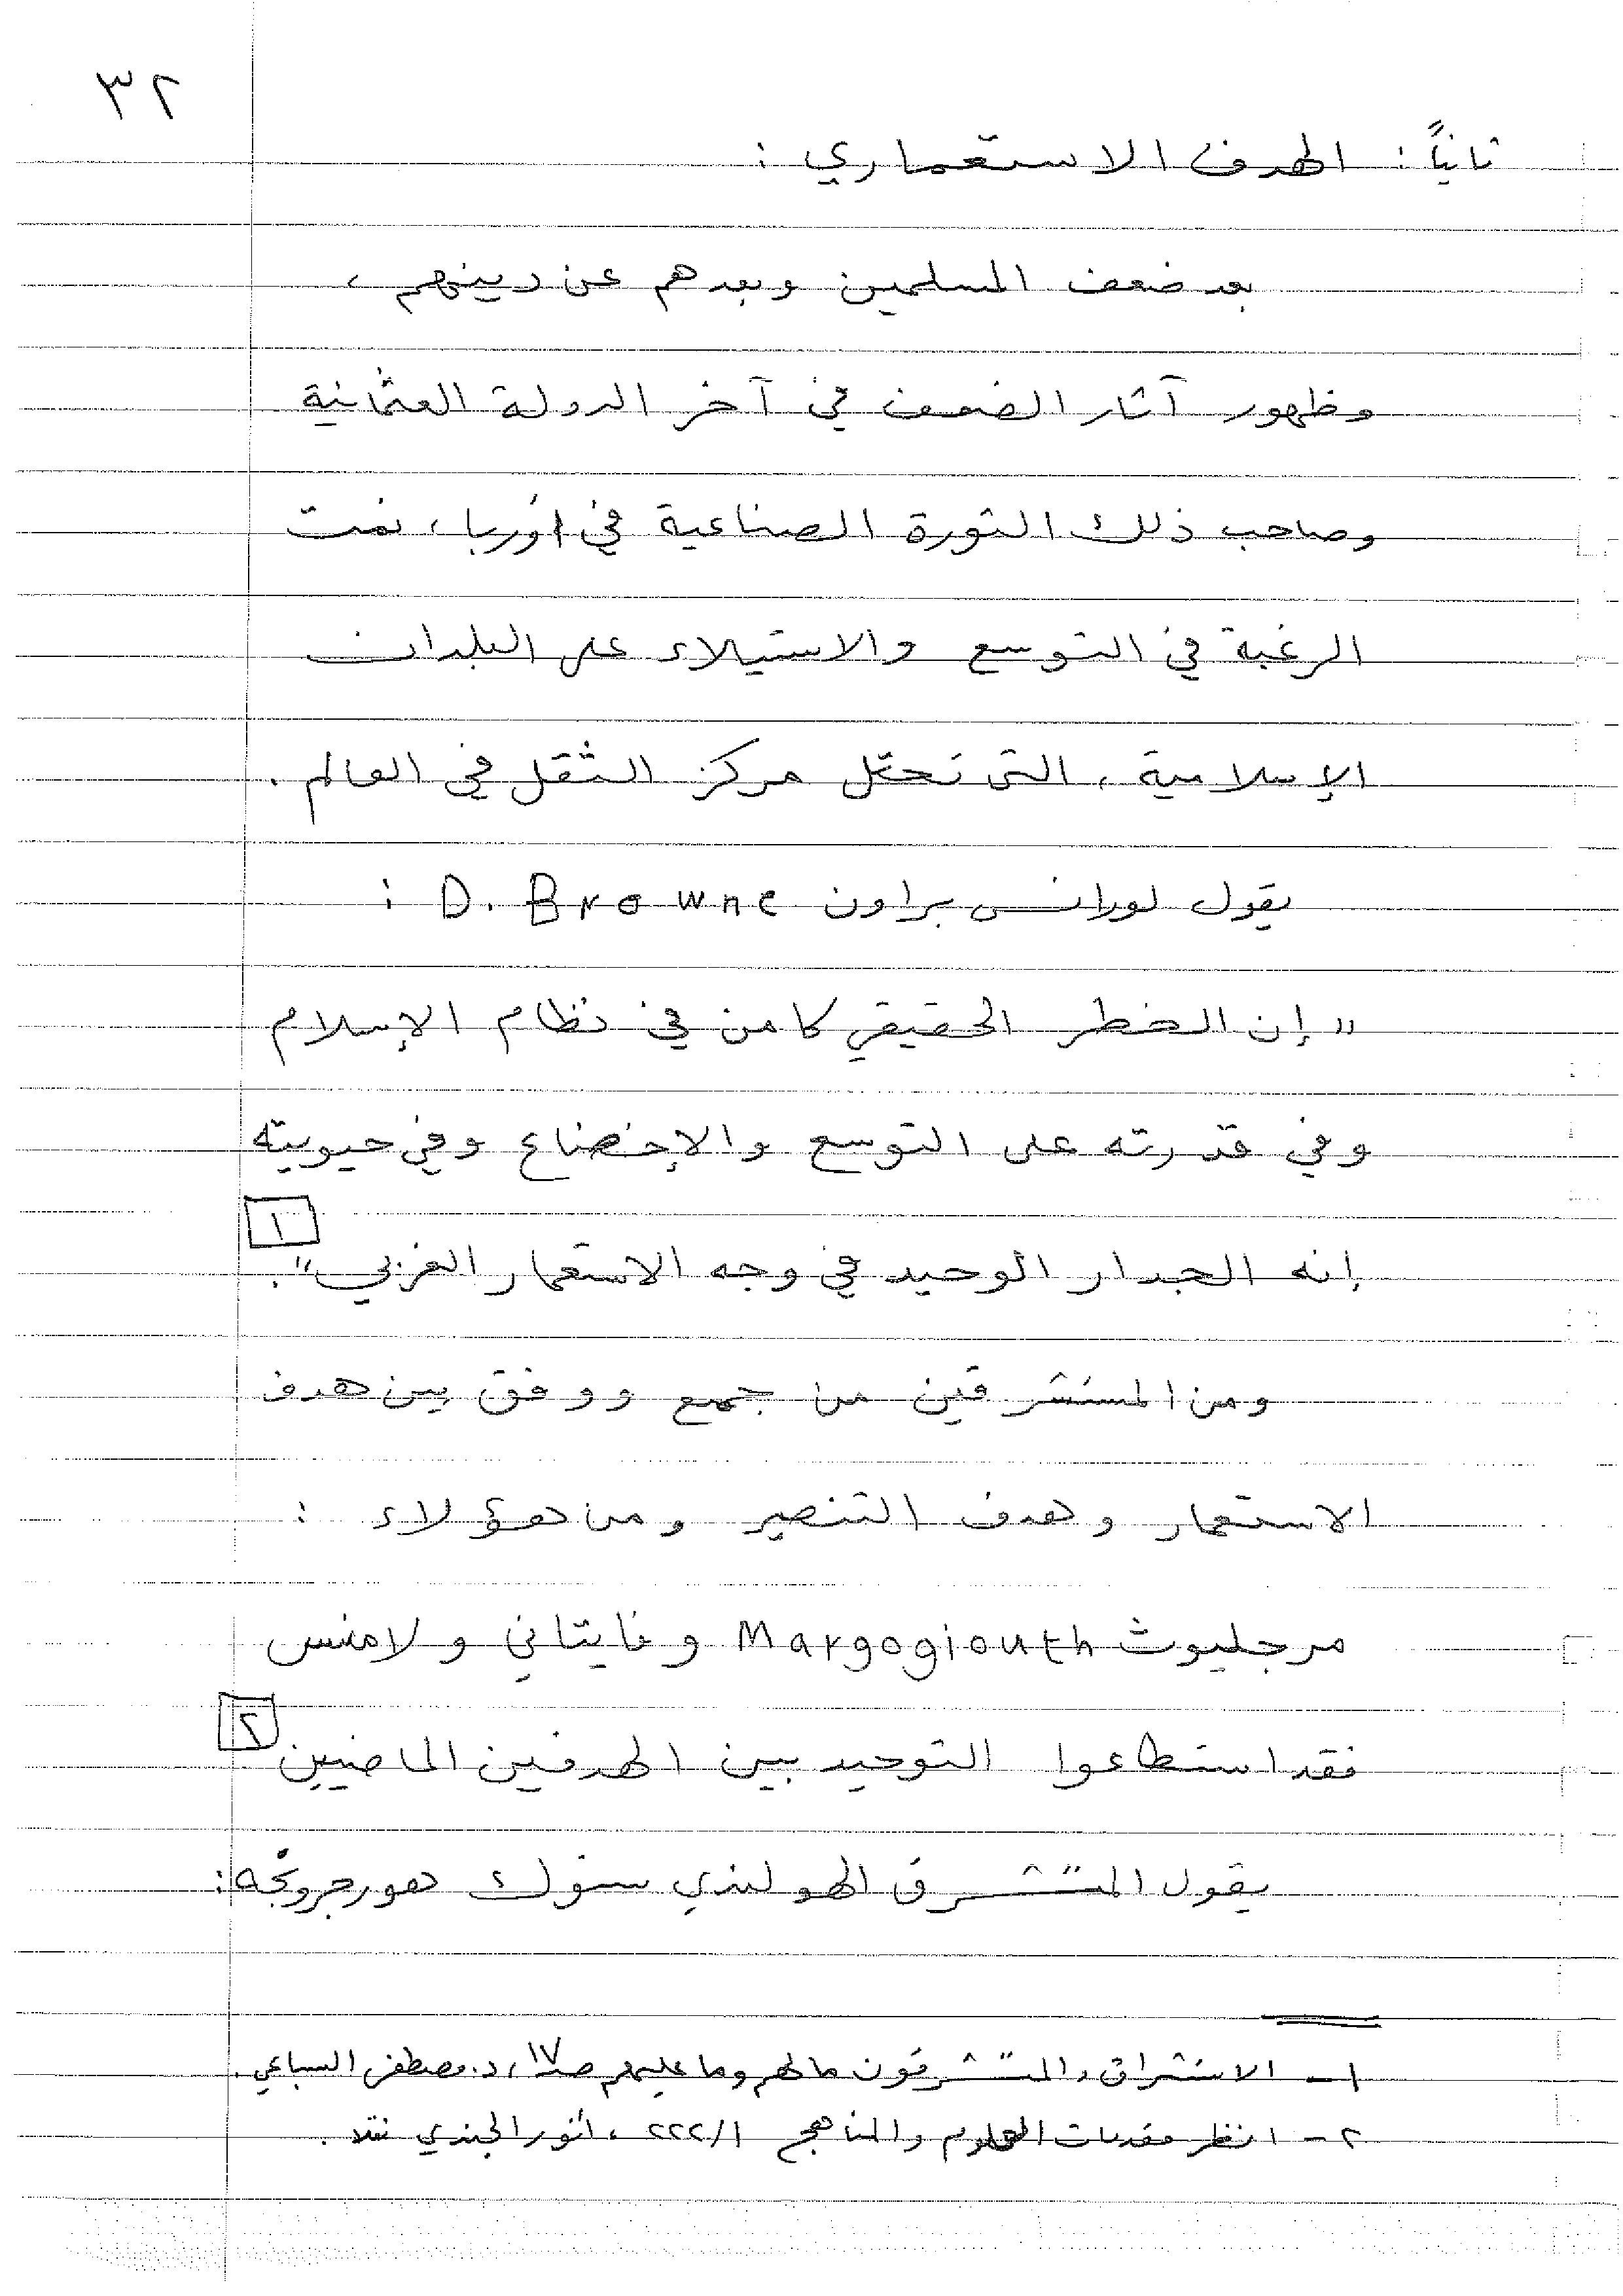 ٣٢
ثانياً : الهدف الاستعماري :
بعد ضعف المسلمين وبعدهم عن دينهم ،
وظهور آثار الضعف في آخر الدولة العثمانية
وصاحب ذلك الثورة الصناعية في أوربا ، نمت
الرغبة في التوسع والاستيلاء على البلدان
الإسلامية ، التي تحتل مركز الثقل في العالم .
يقول لورانس براون D. Browne :
" إن الخطر الحقيقي كامن في نظام الإسلام
وفي قدرته على التوسع والإخضاع وفي حيويته
إنه الجدار الوحيد في وجه الاستعمار الغربي " . [١]
ومن المستشرقين من جمع ووفق بين هدف
الاستعمار وهدف التنصير ومن هؤلاء :
مرجليوث Margogiouth وفايتاني ولامنس
فقد استطاعوا التوحيد بين الهدفين الماضيين [٢]
يقول المستشرق الهولندي سنوك هورجرونجه :
١ - الاستشراق والمستشرقون مالهم وما عليهم صـ١٧ ، د. مصطفى السباعي .
٢ - انظر مقدمات العلوم والمناهج ١/٢٢٢ ، أنور الجندي نقلا .